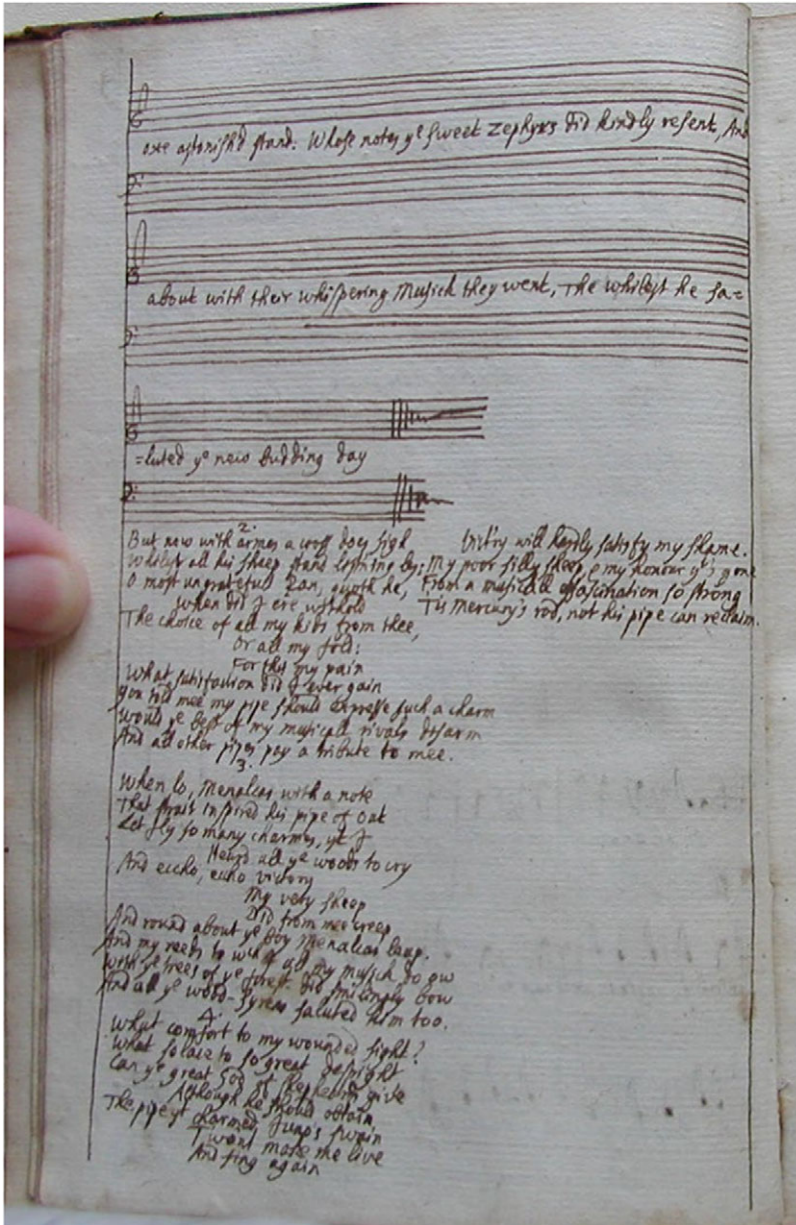 are astonish'd stand: Whose notes ye sweet Zephyrs did kindly resent, And
about with their whispering Musick they went, The whilest he sa=
=luted ye new budding day
2.
But now with armes a cross does sigh
Whilest all his sheep stand list'ning by;
O most ungratefull Pan, quoth he,
When did I ere withold
The choice of all my kids from thee,
Or all my fold:
For this my pain
What satisfaction did I ever gain
You told mee my pipe should expresse such a charm
Would ye best of my musicall rivals disarm
And all other pipes pay a tribute to mee.
3.
When lo, Menalcas with a note
That strait inspired his pipe of Oat
Let fly so many charmes, yt I
Heard all ye woods to cry
And eccho, echo victory
My very sheep
Did from mee creep
And round about ye boy Menalcas leap.
And my reeds to wch all my musick do ow
With ye trees of ye forest did smilingly bow
And all ye wood-Syrens saluted him too.
4.
What comfort to my wounded sight?
What solace to so great despight
Can ye great God of shepheards give
Although he should obtain
The pipe yt charmed Juno's swain
T'wont make me live
And sing again
Vict'ry will hardly satisfy my shame.
My poor silly sheep & my honour yts gone
From a musicall fascination so strong
Tis Mercury's rod, not his pipe can reclaim.